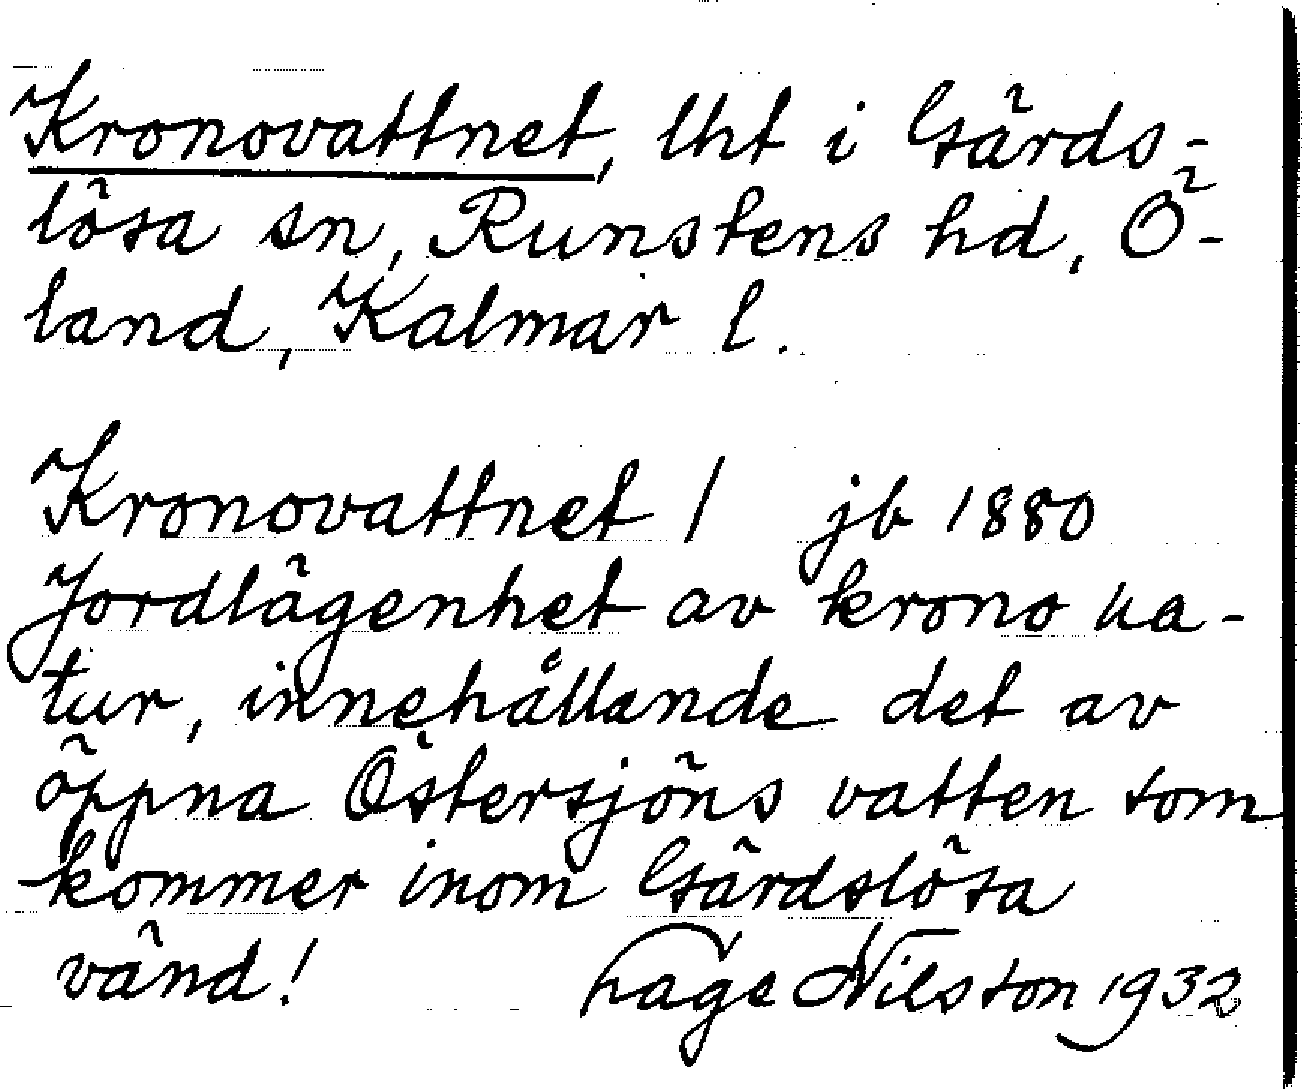 Kronovattnet, lht i Gärds-
lösa sn, Runstens hd, Ö-
land, Kalmar l.
Kronovattnet / jb 1880
Jordlägenhet av krono na-
tur, innehållande det av
öppna Östersjöns vatten som
kommer inom Gärdslösa
vänd! Lage Nilsson 1932